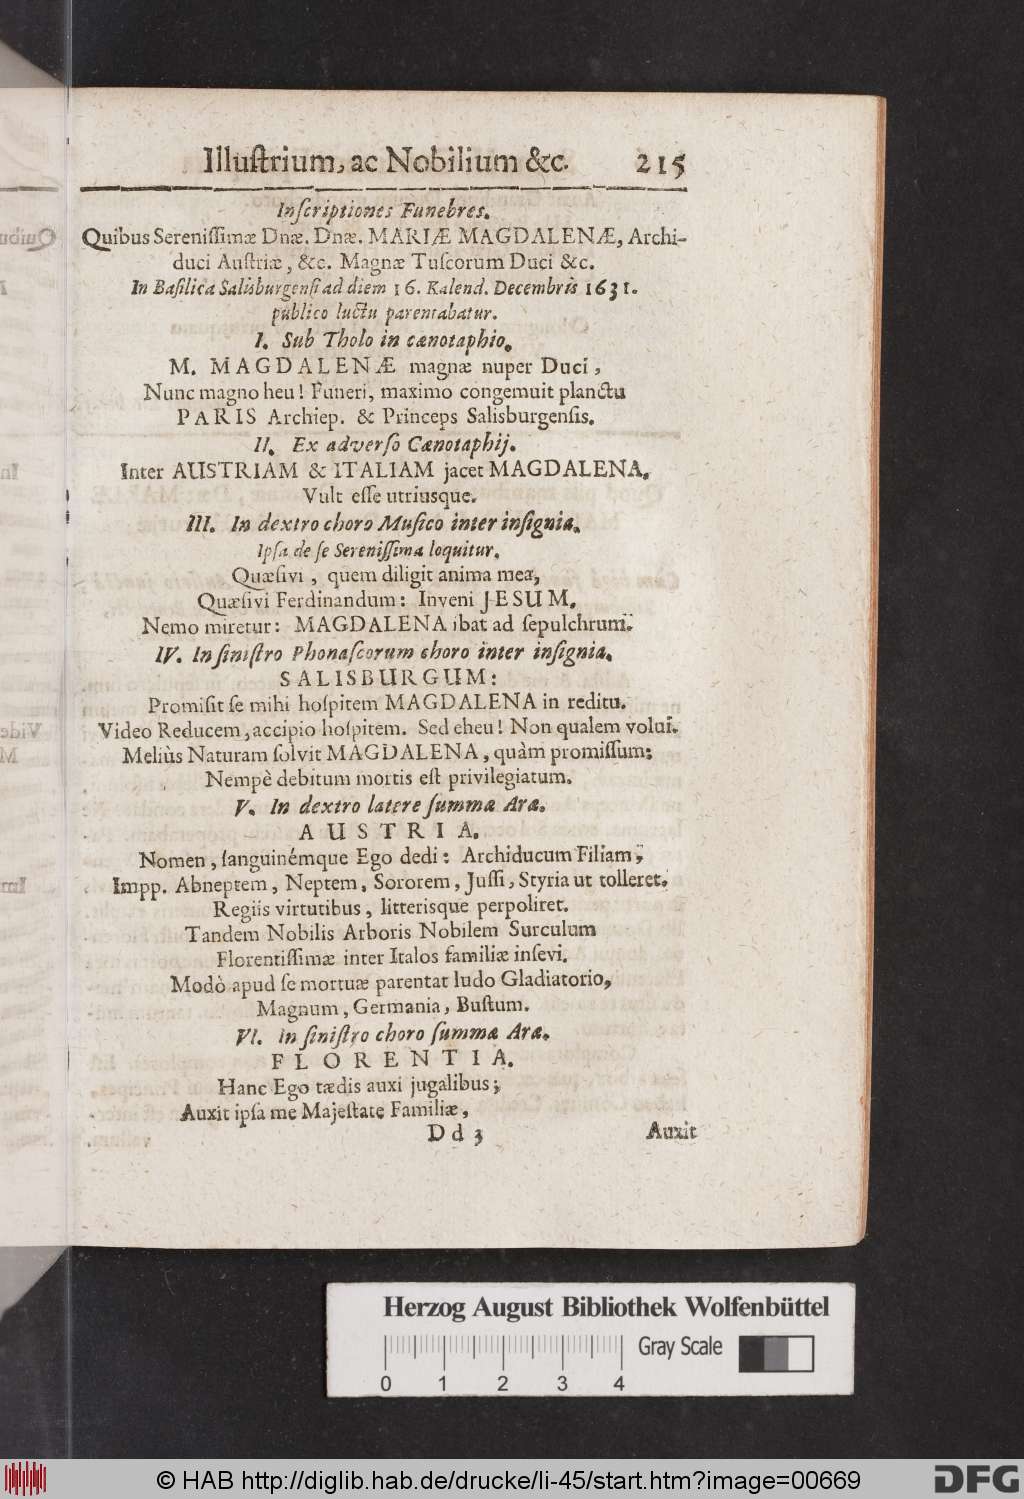 Illuſtrium, ac Nobilium &c. 215
Inſcriptiones Funebres.
Quibus Sereniſſimæ Dnæ. Dnæ. MARIÆ MAGDALENÆ, Archi-
duci Auſtriæ, &c. Magnæ Tuſcorum Duci &c.
In Baſilica Salisburgenſi ad diem 16. Kalend. Decembris 1631.
publico luctu parentabatur.
I. Sub Tholo in cænotaphio.
M. MAGDALENÆ magnæ nuper Duci,
Nunc magno heu! Funeri, maximo congemuit planctu
PARIS Archiep. & Princeps Salisburgenſis.
II. Ex adverſo Cænotaphij.
Inter AUSTRIAM & ITALIAM jacet MAGDALENA.
Vult eſſe utriusque.
III. In dextro choro Muſico inter inſignia.
Ipſa de ſe Sereniſſima loquitur.
Quæſivi, quem diligit anima mea,
Quæſivi Ferdinandum: Inveni JESUM.
Nemo miretur: MAGDALENA ibat ad ſepulchrum.
IV. In ſiniſtro Phonaſcorum choro inter inſignia.
SALISBURGUM:
Promiſit ſe mihi hoſpitem MAGDALENA in reditu.
Video Reducem, accipio hoſpitem. Sed eheu! Non qualem volui.
Meliùs Naturam ſolvit MAGDALENA, quàm promiſſum;
Nempè debitum mortis eſt privilegiatum.
V. In dextro latere ſummæ Aræ.
AUSTRIA.
Nomen, ſanguinémque Ego dedi: Archiducum Filiam,
Impp. Abneptem, Neptem, Sororem, Juſſi, Styria ut tolleret.
Regiis virtutibus, litterisque perpoliret.
Tandem Nobilis Arboris Nobilem Surculum
Florentiſſimæ inter Italos familiæ inſevi.
Modò apud ſe mortuæ parentat ludo Gladiatorio,
Magnum, Germania, Buſtum.
VI. In ſiniſtro choro ſummæ Aræ.
FLORENTIA.
Hanc Ego tædis auxi jugalibus;
Auxit ipſa me Majeſtate Familiæ,
Dd 3 Auxit
Herzog August Bibliothek Wolfenbüttel
Gray Scale
0 1 2 3 4
© HAB http://diglib.hab.de/drucke/li-45/start.htm?image=00669
DFG